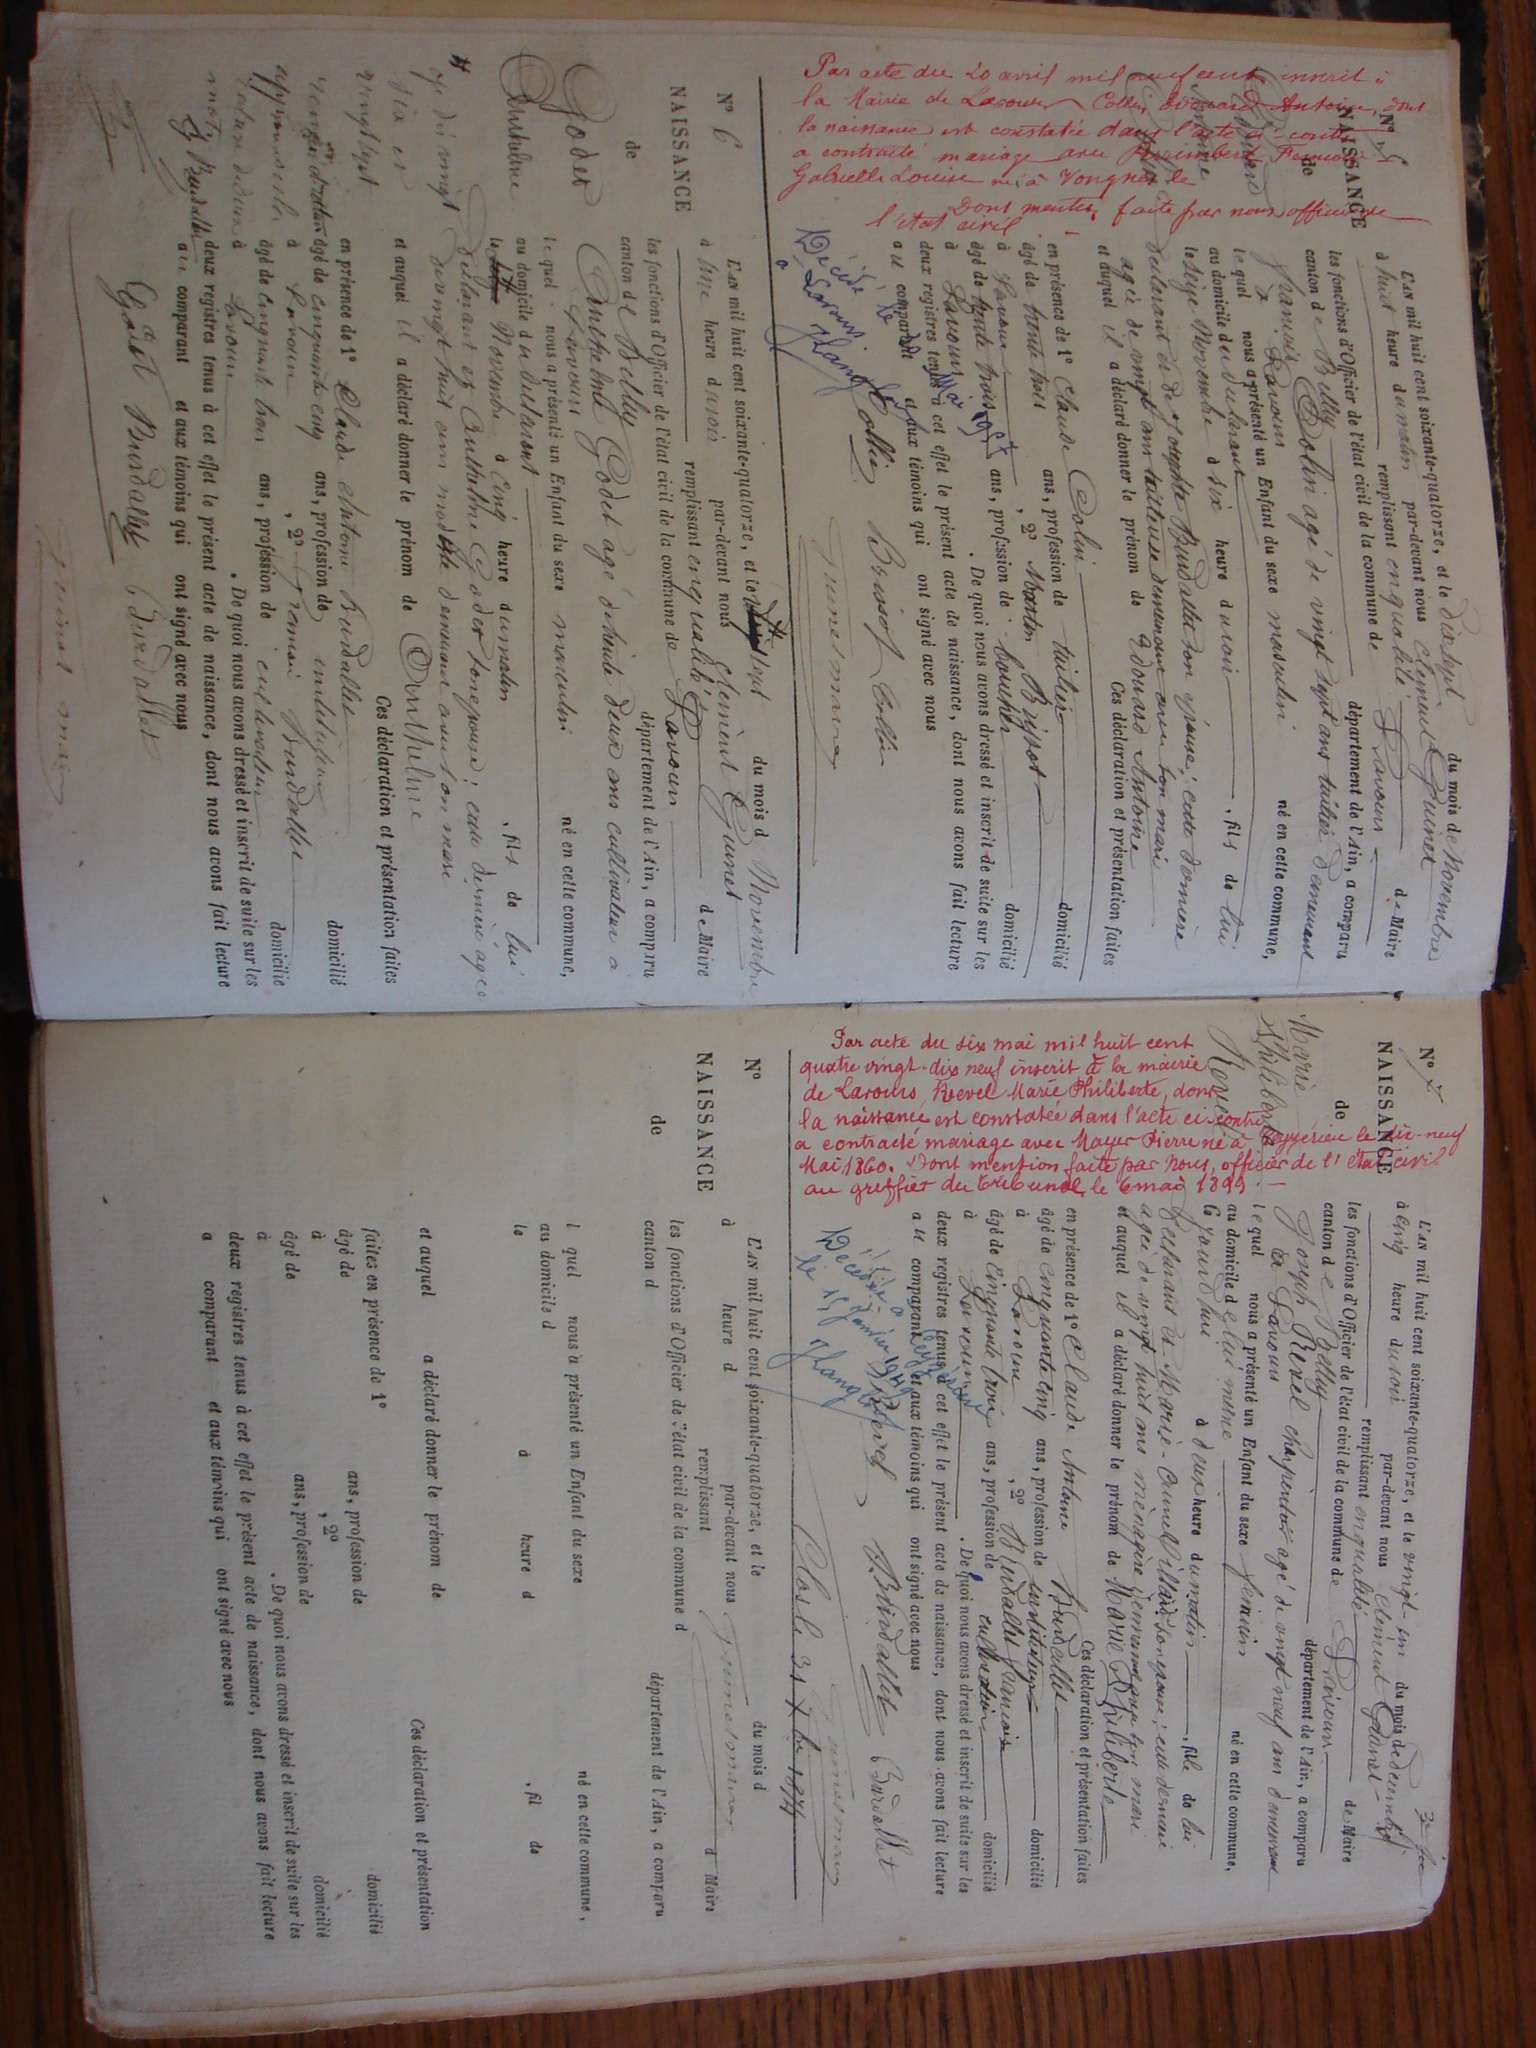 Nº 5
NAISSANCE
de
Par acte du 20 avril mil neuf cent inscrit à
la Mairie de Lavours Collin Edouard Antoine, dont
la naissance est constatée dans l'acte ci-contre
a contracté mariage avec
Gabrielle Louise née à Vongnes le
Dont mention faite par nous officier de
l'état civil
L'AN mil huit cent soixante-quatorze, et le dix sept du mois de Novembre
à huit heure du matin par-devant nous Clément Guinet
remplissant en qualité de Maire
les fonctions d'Officier de l'état civil de la commune de Lavours
canton de Belley département de l'Ain, a comparu
François Colin agé de vingt sept ans tuilier demeurant
à Lavours
lequel nous a présenté un Enfant du sexe masculin né en cette commune,
au domicile du déclarant
le seize Novembre à six heure du soir, fils de lui
déclarant et de Burdallet son épouse; cette dernière
agée de vingt ans tailleuse demeurant avec son mari
et auquel il a déclaré donner le prénom de Edouard Antoine
Ces déclaration et présentation faites
en présence de 1º Claude Colin
âgé de trente trois ans, profession de tuilier domicilié
à Lavours, 2º Martin Brigot
âgé de trente trois ans, profession de boucher domicilié
à Lavours. De quoi nous avons dressé et inscrit de suite sur les
deux registres tenus à cet effet le présent acte de naissance, dont nous avons fait lecture
au comparant et aux témoins qui ont signé avec nous
Collin Brigot Collin
Guinet maire
Décédé
à Lavours
le Mai 1957
Nº 6
NAISSANCE
de
Godet
Anthelme
L'AN mil huit cent soixante-quatorze, et le vingt sept du mois d Novembre
à une heure du soir par-devant nous Clément Guinet
remplissant en qualité de Maire
les fonctions d'Officier de l'état civil de la commune de Lavours
canton de Belley département de l'Ain, a comparu
Anthelme Godet agé de trente deux ans cultivateur à
Lavours
lequel nous a présenté un Enfant du sexe masculin né en cette commune,
au domicile du déclarant
le Novembre à cinq heure du matin, fils de lui
déclarant et Anthelme Godet son épouse; cette dernière agée
de vingt huit ans modiste demeurant avec son mari
et auquel il a déclaré donner le prénom de Anthelme
Ces déclaration et présentation faites
en présence de 1º Claude Antoine Burdallet
âgé de cinquante cinq ans, profession de instituteur domicilié
à Lavours, 2º François Burdallet
âgé de cinquante trois ans, profession de cultivateur domicilié
à Lavours. De quoi nous avons dressé et inscrit de suite sur les
deux registres tenus à cet effet le présent acte de naissance, dont nous avons fait lecture
au comparant et aux témoins qui ont signé avec nous
Godet Burdallet Burdallet
Guinet maire
3e fce
Nº 7
NAISSANCE
de
Marie
Philiberte
Revel
Par acte du six mai mil huit cent
quatre vingt-dix neuf inscrit à la mairie
de Lavours, Revel Marie Philiberte, dont
la naissance est constatée dans l'acte ci-contre
a contracté mariage avec Mayer Pierre né à Ceyzérieu le dix-neuf
Mai 1860. Dont mention faite par nous, officier de l'état civil
au greffier du tribunal, le 6 mai 1899.
L'AN mil huit cent soixante-quatorze, et le vingt-un du mois de décembre
à cinq heure du soir par-devant nous Clément Guinet
remplissant en qualité de Maire
les fonctions d'Officier de l'état civil de la commune de Lavours
canton de Belley département de l'Ain, a comparu
Joseph Revel charpentier agé de vingt neuf ans demeurant
à Lavours
lequel nous a présenté un Enfant du sexe féminin né en cette commune,
au domicile de lui même
le jour d'hui à deux heure du matin, fille de lui
déclarant et Marie-Anne Villard son épouse; cette dernière
agée de vingt huit ans ménagère demeurant avec son mari
et auquel il a déclaré donner le prénom de Marie Philiberte
Ces déclaration et présentation faites
en présence de 1º Claude Antoine Burdallet
âgé de cinquante cinq ans, profession de instituteur domicilié
à Lavours, 2º Burdallet François
âgé de cinquante trois ans, profession de cultivateur domicilié
à Lavours. De quoi nous avons dressé et inscrit de suite sur les
deux registres tenus à cet effet le présent acte de naissance, dont nous avons fait lecture
au comparant et aux témoins qui ont signé avec nous
Revel Burdallet Burdallet
Guinet maire
Décédée à Ceyzérieu
le 15 Janvier 1949
Clos le 31 Xbre 1874
Guinet maire
Nº
NAISSANCE
de
L'AN mil huit cent soixante-quatorze, et le du mois d
à heure d par-devant nous
remplissant d Maire
les fonctions d'Officier de l'état civil de la commune d
canton d département de l'Ain, a comparu
l quel nous a présenté un Enfant du sexe né en cette commune,
au domicile d
le à heure d, fil de
et auquel a déclaré donner le prénom de
Ces déclaration et présentation
faites en présence de 1º
âgé de ans, profession de domicilié
à, 2º
âgé de ans, profession de domicilié
à. De quoi nous avons dressé et inscrit de suite sur les
deux registres tenus à cet effet le présent acte de naissance, dont nous avons fait lecture
a comparant et aux témoins qui ont signé avec nous